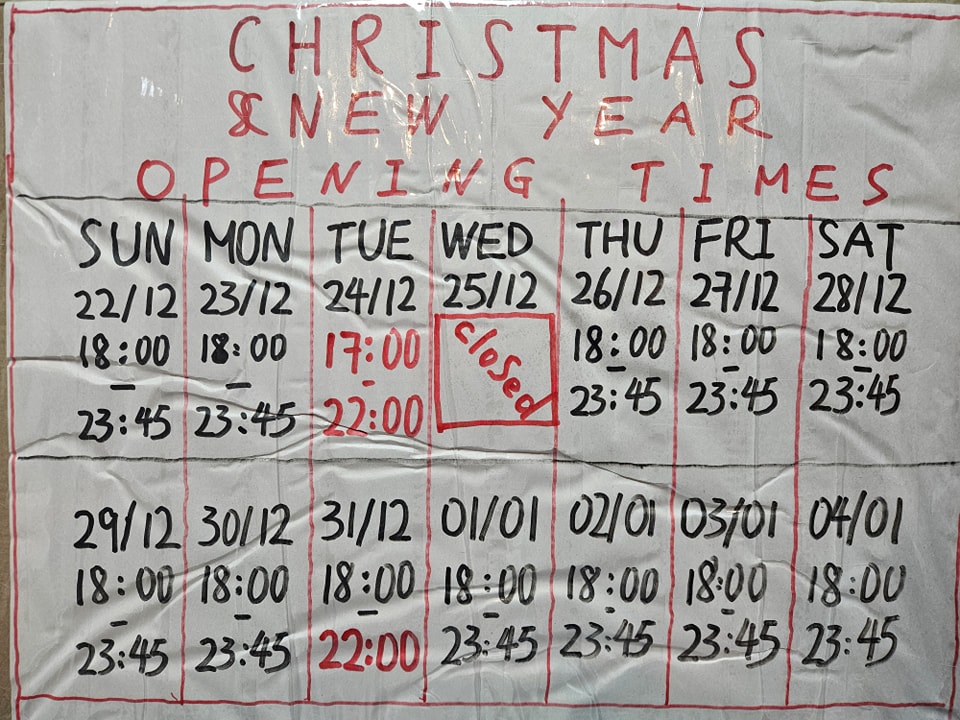 CHRISTMAS
& NEW YEAR
OPENING TIMES
SUN MON TUE WED THU FRI SAT
22/12 23/12 24/12 25/12 26/12 27/12 28/12
18:00 18:00 17:00 closed 18:00 18:00 18:00
- - - - - -
23:45 23:45 22:00 23:45 23:45 23:45
29/12 30/12 31/12 01/01 02/01 03/01 04/01
18:00 18:00 18:00 18:00 18:00 18:00 18:00
- - - - - -
23:45 23:45 22:00 23:45 23:45 23:45 23:45